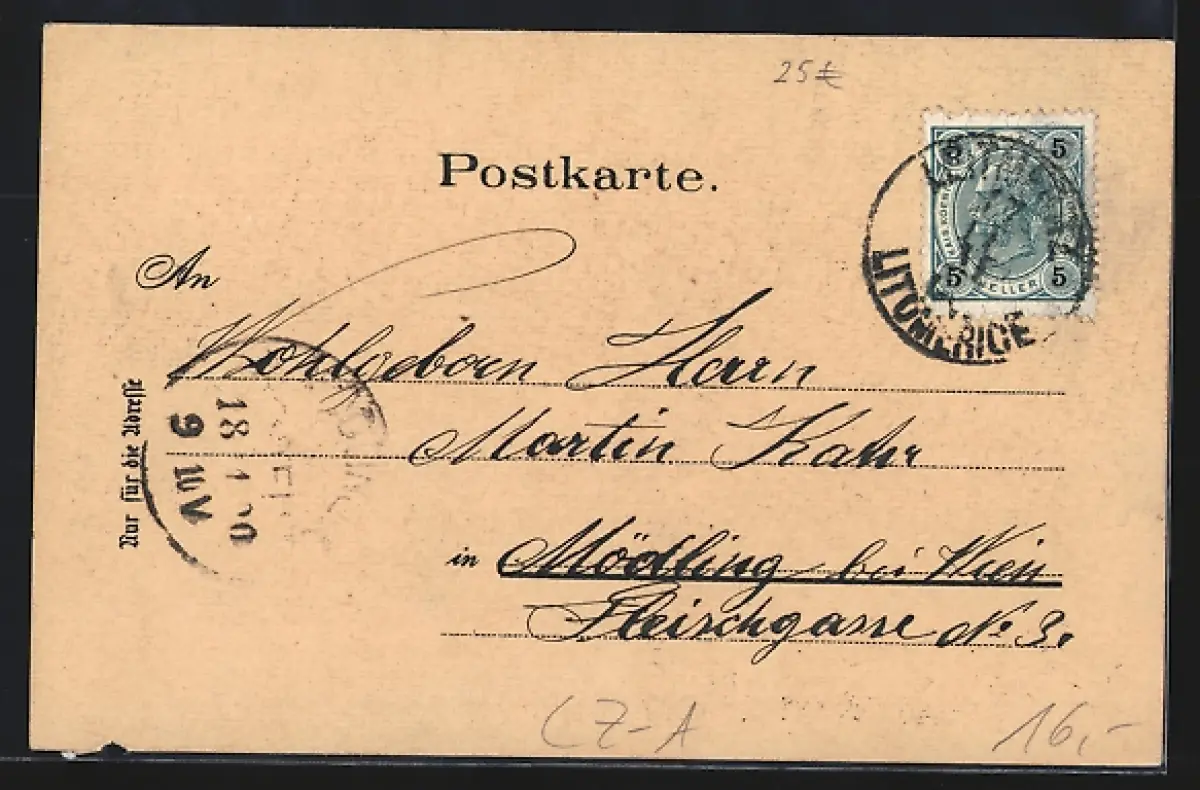 25€
Postkarte.
5 5
5 5
HELLER
LITOMĚŘICE
An
Wohlgeboren Herrn
Martin Kahr
Nur für die Adresse
18
9
V
in Mödling bei Wien
Fleischgasse No 3.
CZ-A
16,-